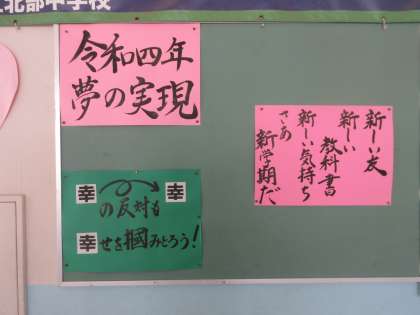 北部中学校
令和四年
夢の実現
新しい友
新しい
教科書
新しい気持ち
さあ
新学期だ
幸 幸
の反対も
幸せを掴みとろう!